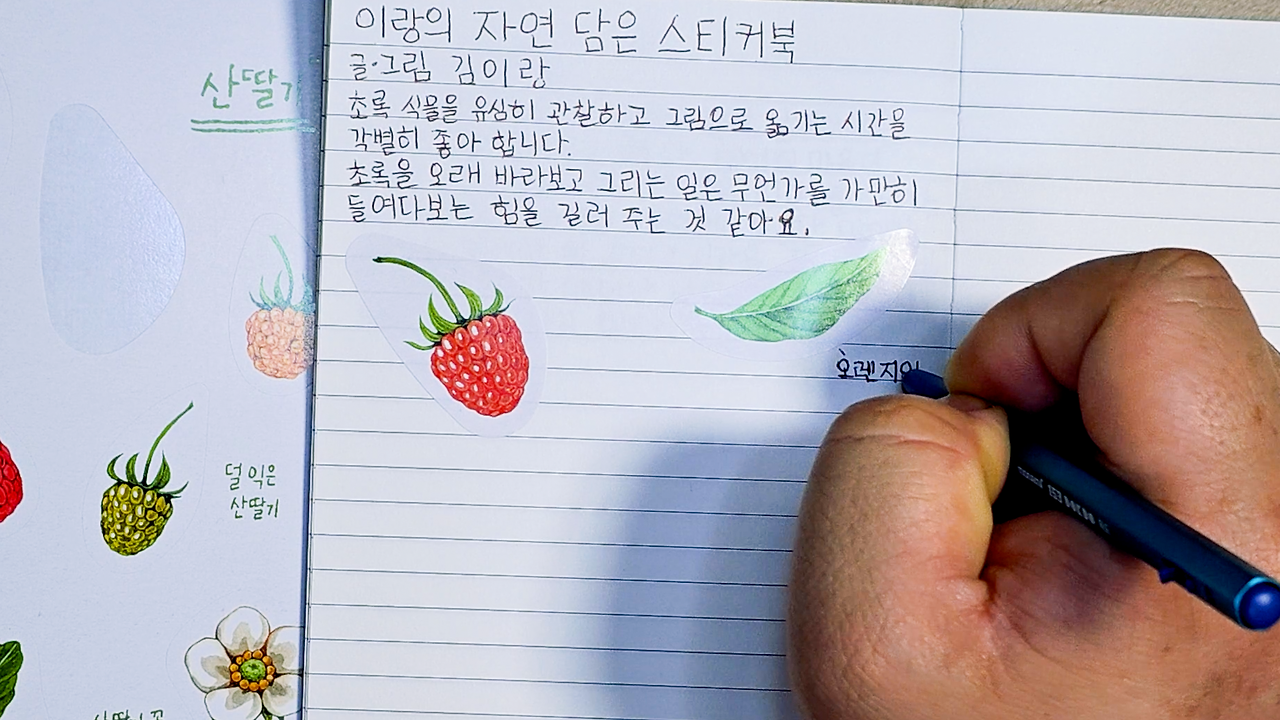 이랑의 자연 담은 스티커북
글·그림 김이랑
초록 식물을 유심히 관찰하고 그림으로 옮기는 시간을
각별히 좋아 합니다.
초록을 오래 바라보고 그리는 일은 무언가를 가만히
들여다보는 힘을 길러 주는 것 같아요.
오렌지잎
산딸기
덜 익은
산딸기